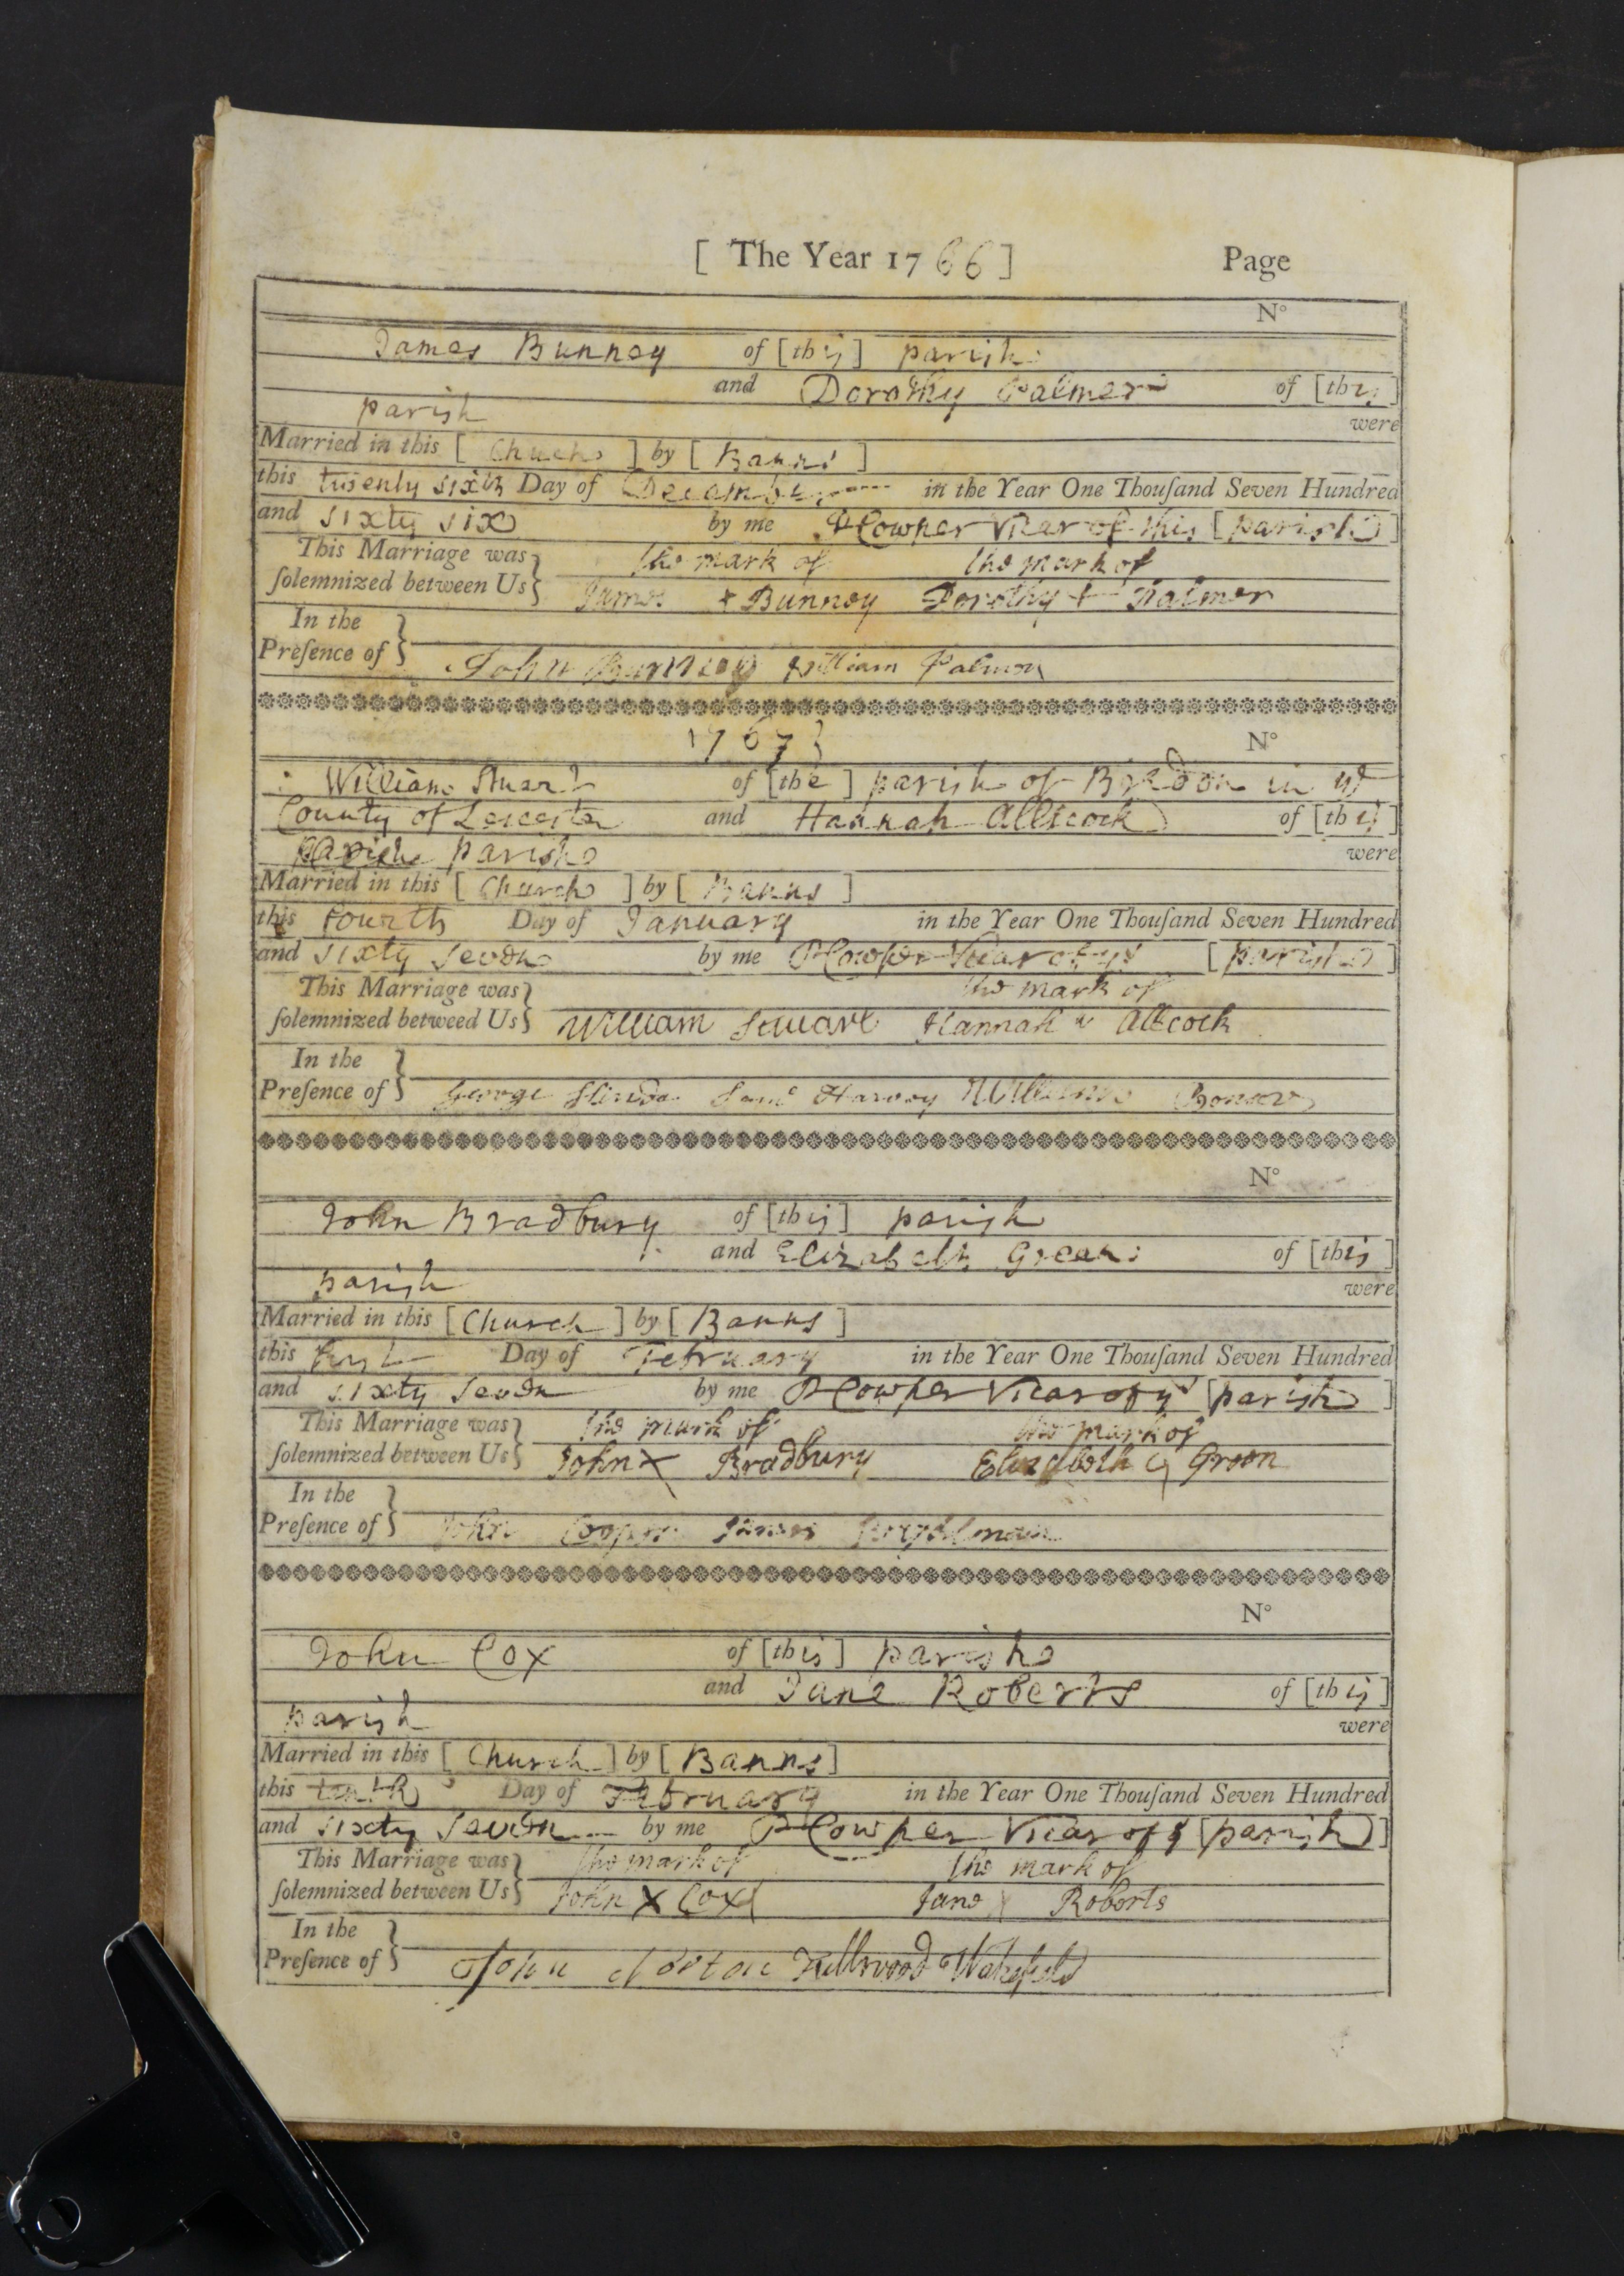 [ The Year 1766 ] Page
N°
James Bunney of [this] parish
and Dorothy Palmer of [this]
parish were
Married in this [ Church ] by [ Banns ]
this twenty sixth Day of December in the Year One Thouſand Seven Hundred
and sixty six by me P Cowper Vicar of this [ parish ]
This Marriage was the mark of the mark of
ſolemnized between Us James + Bunney Dorothy + Palmer
In the
Preſence of John Bunney William Palmer
1767
N°
William Stuart of [the] parish of Bredon in ye
County of Leicester and Hannah Allcock of [this]
parish parish were
Married in this [ Church ] by [ Banns ]
this fourth Day of January in the Year One Thouſand Seven Hundred
and sixty seven by me P Cowper Vicar of ys [ parish ]
This Marriage was the mark of
ſolemnized betweed Us William Hannah Allcock
In the
Preſence of George Saml Harvey William
N°
John Bradbury of [this] parish
and Elizabeth Green of [this]
parish were
Married in this [ Church ] by [ Banns ]
this first Day of February in the Year One Thouſand Seven Hundred
and sixty seven by me P Cowper Vicar of ys [ parish ]
This Marriage was the mark of the mark of
ſolemnized between Us John X Bradbury Elizabeth Green
In the
Preſence of John Cooper James
N°
John Cox of [this] parish
and Jane Roberts of [this]
parish were
Married in this [ Church ] by [ Banns ]
this tenth Day of February in the Year One Thouſand Seven Hundred
and sixty seven by me P Cowper Vicar of ys [ parish ]
This Marriage was the mark of the mark of
ſolemnized between Us John X Cox Jane X Roberts
In the
Preſence of John Norton Wakefield